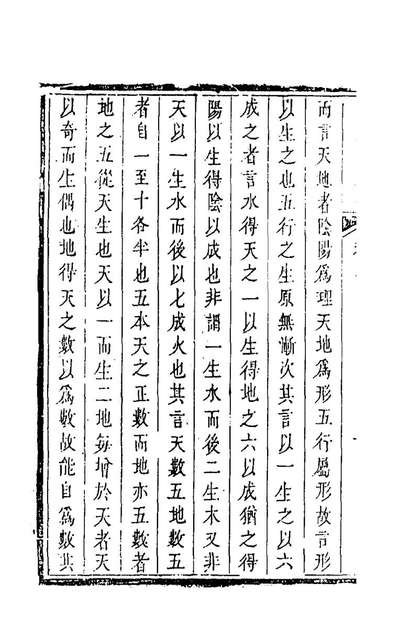 而言天地者陰陽爲理天地爲形五行屬形故言形
以生之也五行之生原無漸次其言以一生之以六
成之者言水得天之一以生得地之六以成猶之得
陽以生得陰以成也非謂一生水而後二生木又非
天以一生水而後以七成火也其言天數五地數五
者自一至十各半也五本天之正數而地亦五數者
地之五從天生也天以一而生二地每增於天者天
以奇而生偶也地得天之數以爲數故能自爲數其